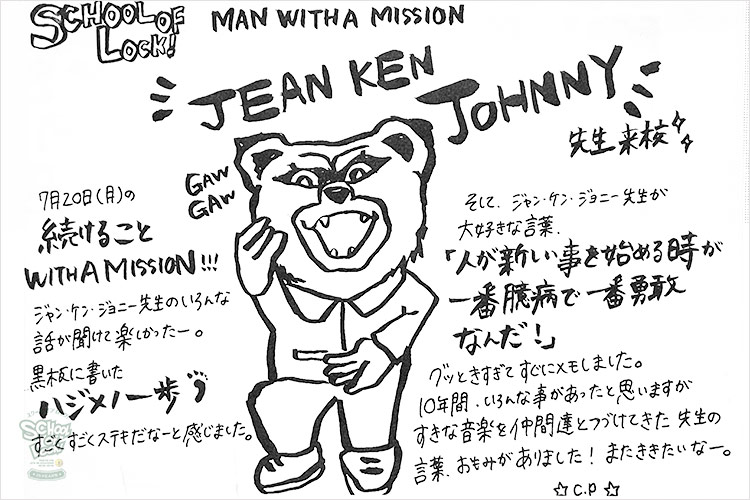 SCHOOL OF LOCK!
MAN WITH A MISSION
JEAN KEN JOHNNY
先生来校
GAW
GAW
7月20日(月)の
続けること
WITH A MISSION!!!
ジャン・ケン・ジョニー先生のいろんな
話が聞けて楽しかったー。
黒板に書いた
ハジメノ一歩
すごくすごくステキだなーと感じました。
そして、ジャン・ケン・ジョニー先生が
大好きな言葉、
「人が新しい事を始める時が
一番臆病で一番勇敢
なんだ!」
グッときすぎてすぐにメモしました。
10年間、いろんな事があったと思いますが
すきな音楽を仲間達とつづけてきた先生の
言葉、おもみがありました! またききたいなー。
☆C.P☆